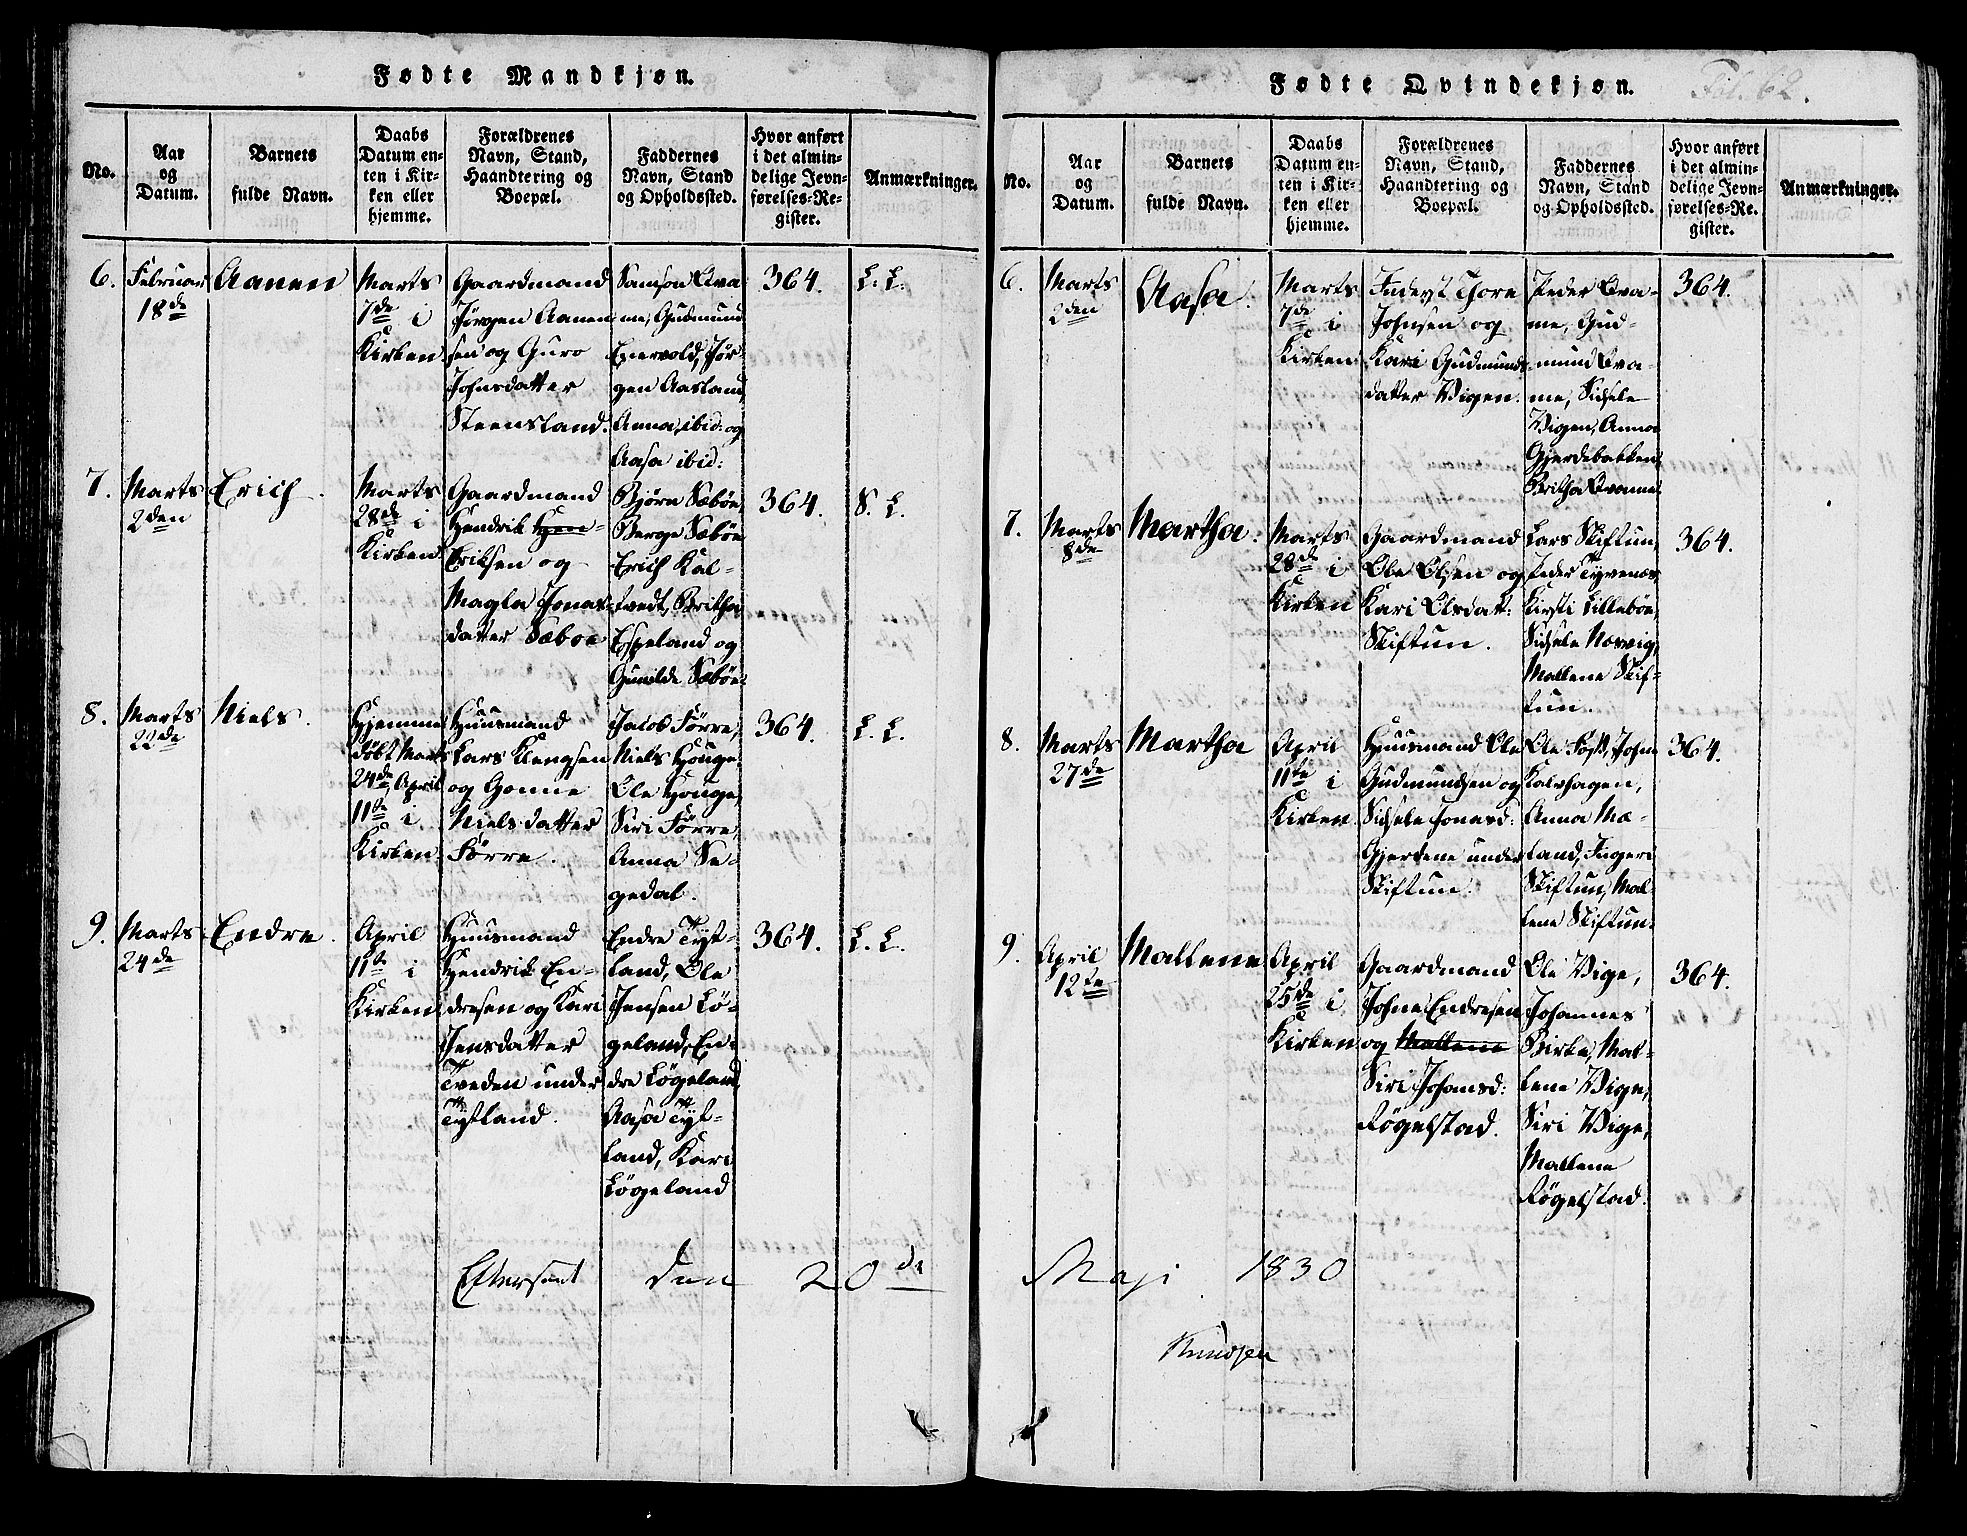 Fødte Mandkjøn.
No.
Aar
og
Datum.
Barnets
fulde Navn.
Daabs
Datum en-
ten i Kir-
ken eller
hjemme.
Forældrenes
Navn, Stand,
Haandtering og
Boepæl.
Faddernes
Navn, Stand
og Opholdssted.
Hvor anført
i det almin-
delige Jevn-
førelses-Re-
gister.
Anmærkninger.
6.
Februar
18de
Aanen
Marts
7de i
Kirken
Gaardmand
Jørgen Aanen
sen og Guro
Johnsdatter
Steensland.
Samson Qva
me, Gudmund
Enervold, Jør
gen Aasland
Anna ibid: og
Aasa ibid:
364.
L. L.
7.
Marts
2den
Erich
Marts
28de i
Kirken
Gaardmand
Hendrik Hen-
Eriksen og
Magla Jonas
datter Sæboe
Bjørn Sæbøe,
Berge Sæbøe
Erich Kal-
tvedt, Britha
Espeland og
Gunilde Sæbøe
364.
S. L.
8.
Marts
22de
Niels.
Hjemme
døbt Marts
24de, April
11te i
Kirken
Huusmand
Lars Klengsen
og Gonne
Nielsdatter
Førre.
Jacob Førre,
Niels Houge
Ole Houge,
Siri Førre
Anna Se-
gedal.
364.
L. L.
9.
Marts
24de
Endre.
April
11te i
Kirken
Huusmand
Hendrik En-
dresen og Kari
Jensdatter
Tveden under
Tystland.
Endre Tyst-
land, Ole
Jensen Lø-
geland, En-
dre Løgeland
Aasa Tyst-
land, Kari
Løgeland
364.
L. L.
Efterseet den 20de
Fødte Qvindekjøn.
Fol. 62.
No.
Aar
og
Datum.
Barnets
fulde Navn.
Daabs
Datum en-
ten i Kir-
ken eller
hjemme.
Forældrenes
Navn, Stand,
Haandtering og
Boepæl.
Faddernes
Navn, Stand
og Opholdssted.
Hvor anført
i det almin-
delige Jevn-
førelses-Re-
gister.
Anmærkninger.
6.
Marts
2den
Aasa
Marts
7de i
Kirken
Inderst Thore
Johnsen og
Kari Gudmunds
datter Vigen.
Peder Qva-
me, Gud-
mund Qva-
me, Sidsele
Vigen, Anna
Gjerdebakken
Britha Qvame
364.
7.
Marts
8de
Martha.
Marts
28de i
Kirken
Gaardmand
Ole Olsen og
Kari Olsdatt:
Skiftun.
Lars Skiftun,
Peder Tyvenæs,
Kirsti Lillebøe,
Sidsele Norvig,
Mallene Skif-
tun.
364.
8.
Marts
27de
Martha
April
11te i
Kirken
Huusmand Ole
Gudmundsen og
Sidsele Jonasd:
Gjerdene under
Skiftun.
Ole Fosß, John
Kalvhagen,
Anna Mæ-
land, Ingeri
Skiftun, Mal-
lene Skiftun.
364.
9.
April
12te
Mallene
April
25de i
Kirken
Gaardmand
Johne Endresen
og Mallene
Siri Johansd:
Føgelstad.
Ole Vige,
Johannes
Birke, Mal-
lene Vige,
Siri Vige,
Mallene
Føgelstad.
364.
Maji 1830
Knudsen